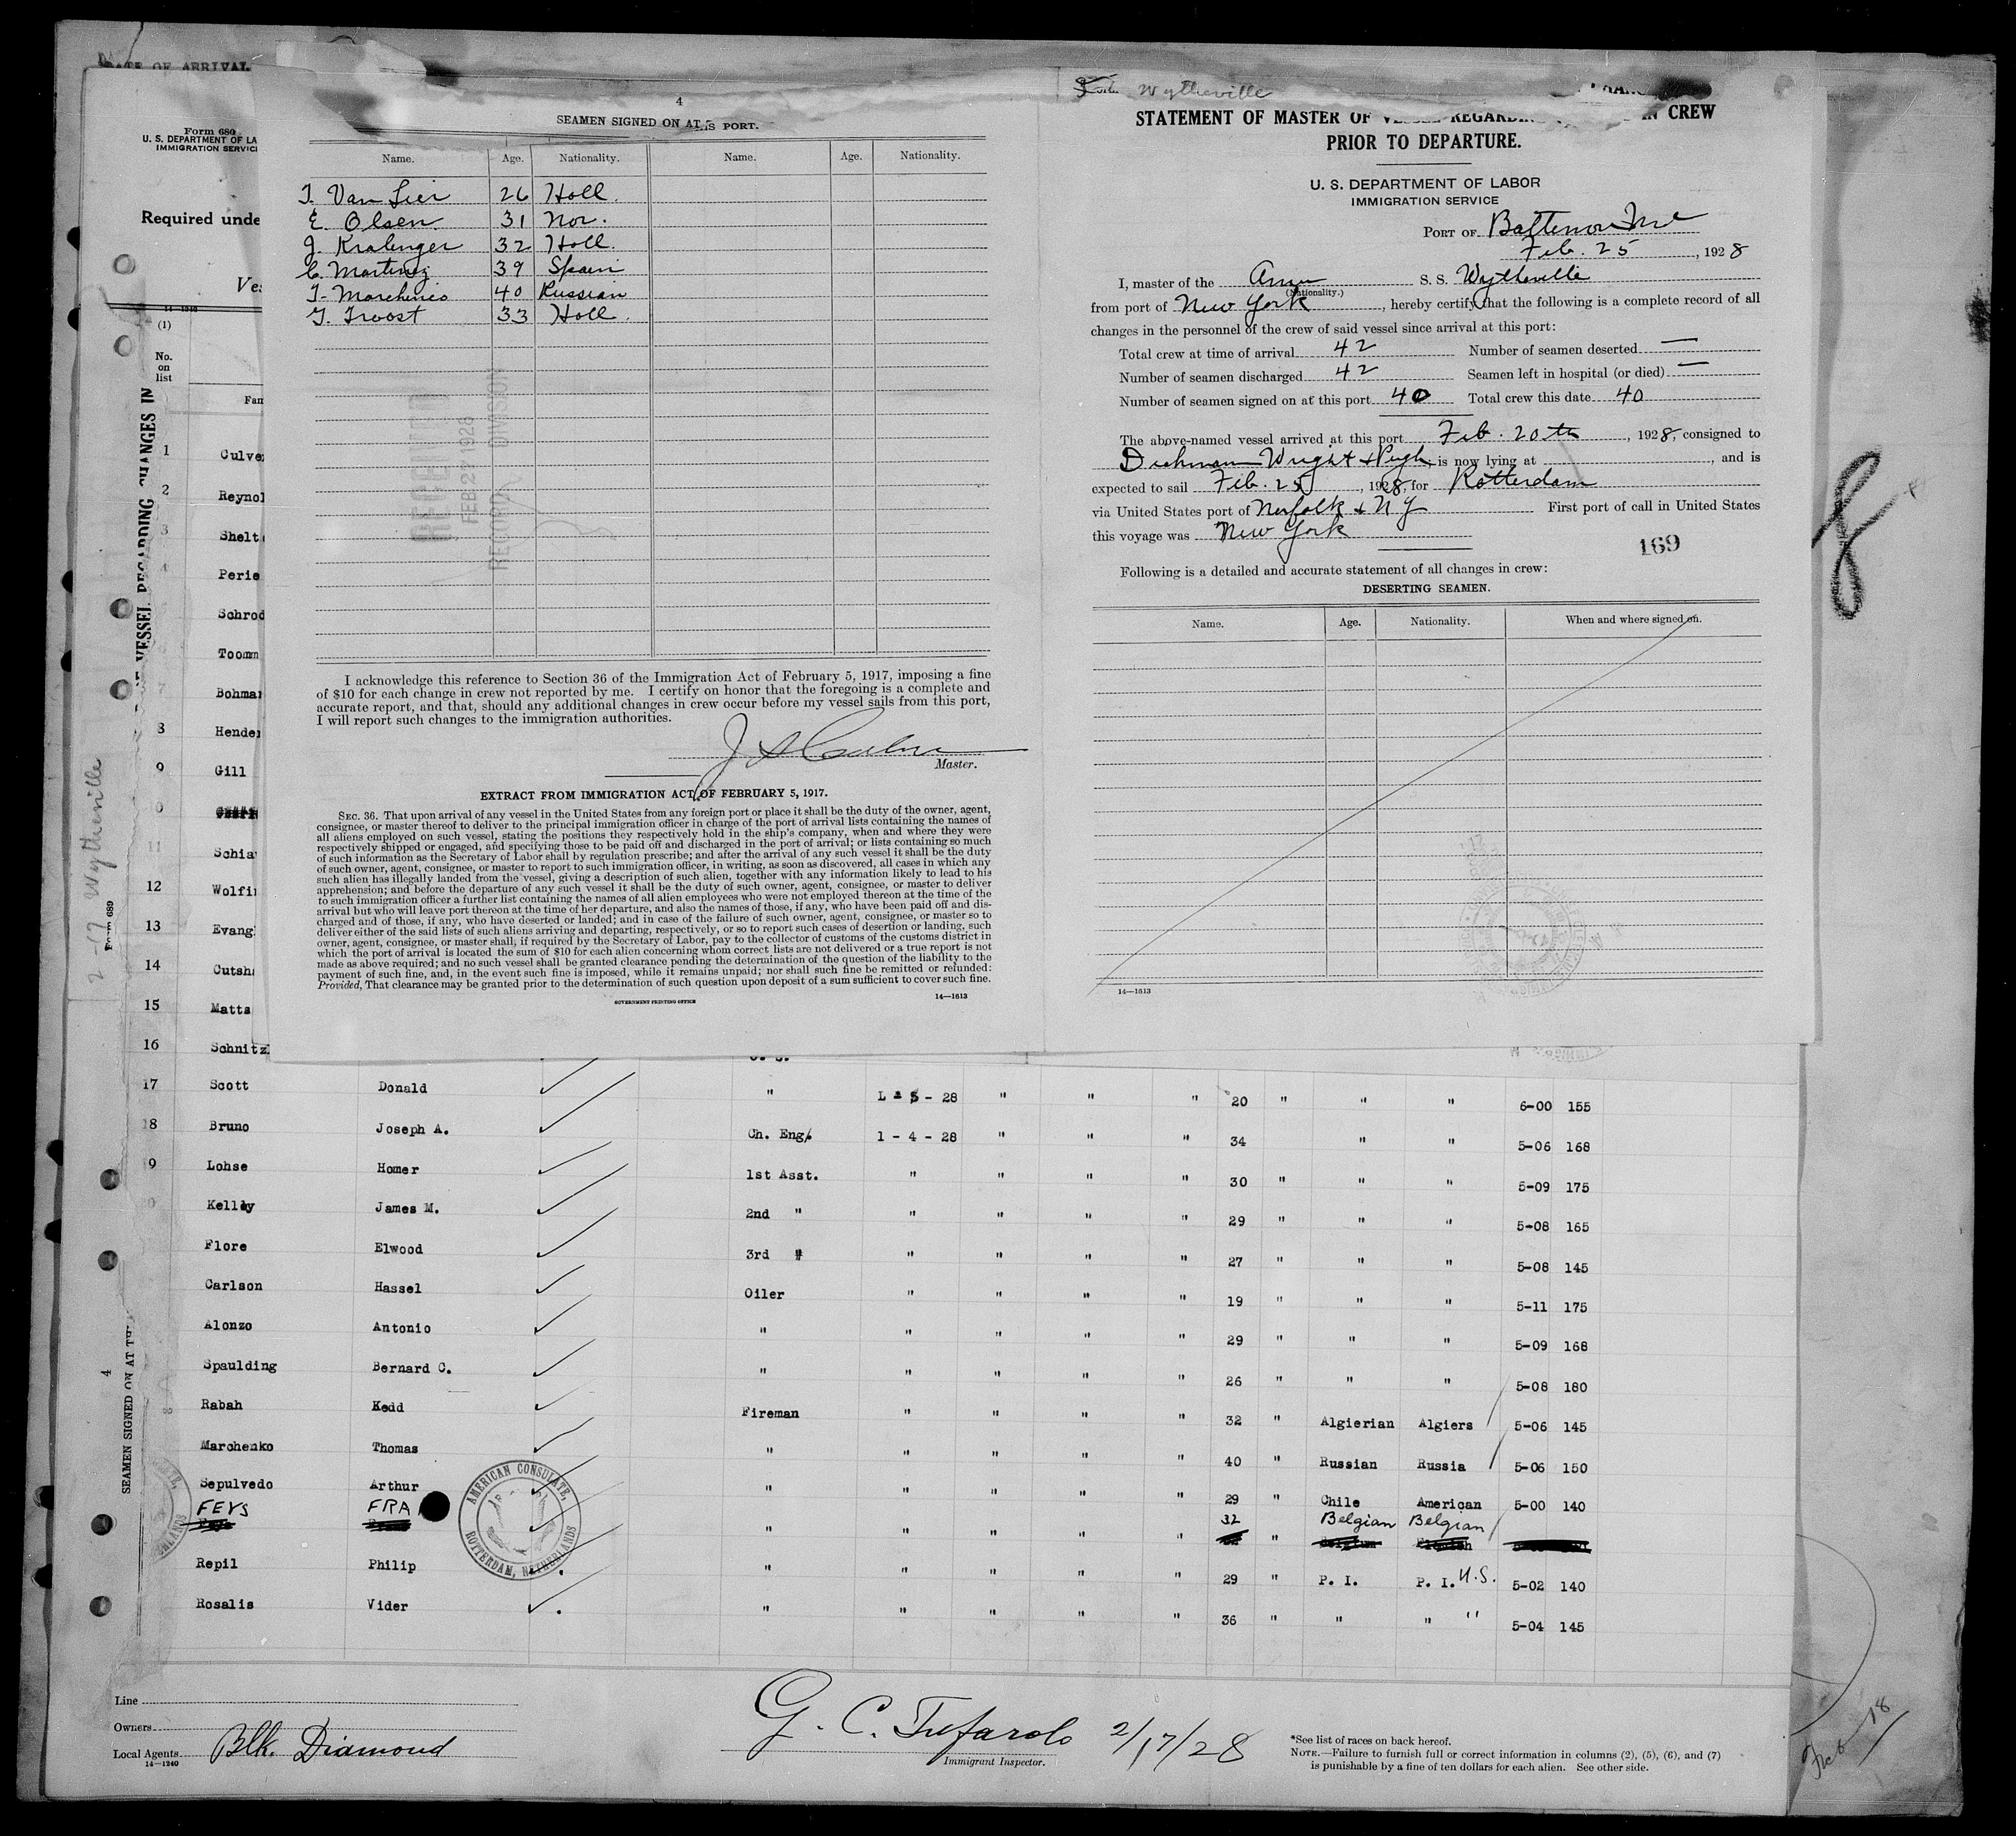 DATE OF ARRIVAL
Form 680
U. S. DEPARTMENT OF LA
IMMIGRATION SERVIC
Required unde
Ves
14—1240
(1)
No.
on
list
Fam
VESSEL REGARDING CHANGES IN
2-17 Wytheville
Form 689
4
SEAMEN SIGNED ON AT TH
4
SEAMEN SIGNED ON AT THIS PORT.
Name. Age. Nationality. Name. Age. Nationality.
T. Van Lier 26 Holl.
E. Olsen 31 Nor.
J. Kralinger 32 Holl.
C. Martinez 39 Spain
T. Marchinio 40 Russian
T. Troost 33 Holl.
RECEIVED
FEB 27 1928
RECORD DIVISION
I acknowledge this reference to Section 36 of the Immigration Act of February 5, 1917, imposing a fine
of $10 for each change in crew not reported by me. I certify on honor that the foregoing is a complete and
accurate report, and that, should any additional changes in crew occur before my vessel sails from this port,
I will report such changes to the immigration authorities.
Master.
EXTRACT FROM IMMIGRATION ACT OF FEBRUARY 5, 1917.
SEC. 36. That upon arrival of any vessel in the United States from any foreign port or place it shall be the duty of the owner, agent,
consignee, or master thereof to deliver to the principal immigration officer in charge of the port of arrival lists containing the names of
all aliens employed on such vessel, stating the positions they respectively hold in the ship's company, when and where they were
respectively shipped or engaged, and specifying those to be paid off and discharged in the port of arrival; or lists containing so much
of such information as the Secretary of Labor shall by regulation prescribe; and after the arrival of any such vessel it shall be the duty
of such owner, agent, consignee, or master to report to such immigration officer, in writing, as soon as discovered, all cases in which any
such alien has illegally landed from the vessel, giving a description of such alien, together with any information likely to lead to his
apprehension; and before the departure of any such vessel it shall be the duty of such owner, agent, consignee, or master to deliver
to such immigration officer a further list containing the names of all alien employees who were not employed thereon at the time of the
arrival but who will leave port thereon at the time of her departure, and also the names of those, if any, who have been paid off and dis-
charged and of those, if any, who have deserted or landed; and in case of the failure of such owner, agent, consignee, or master so to
deliver either of the said lists of such aliens arriving and departing, respectively, or so to report such cases of desertion or landing, such
owner, agent, consignee, or master shall, if required by the Secretary of Labor, pay to the collector of customs of the customs district in
which the port of arrival is located the sum of $10 for each alien concerning whom correct lists are not delivered or a true report is not
made as above required; and no such vessel shall be granted clearance pending the determination of the question of the liability to the
payment of such fine, and, in the event such fine is imposed, while it remains unpaid; nor shall such fine be remitted or refunded:
Provided, That clearance may be granted prior to the determination of such question upon deposit of a sum sufficient to cover such fine.
GOVERNMENT PRINTING OFFICE 14—1613
Wytheville
STATEMENT OF MASTER OF VESSEL REGARDING IN CREW
PRIOR TO DEPARTURE.
U. S. DEPARTMENT OF LABOR
IMMIGRATION SERVICE
PORT OF Baltimore Md
Feb. 25, 1928
I, master of the Amn S. S. Wytheville
(Nationality.)
from port of New York, hereby certify that the following is a complete record of all
changes in the personnel of the crew of said vessel since arrival at this port:
Total crew at time of arrival 42 Number of seamen deserted —
Number of seamen discharged 42 Seamen left in hospital (or died) —
Number of seamen signed on at this port 40 Total crew this date 40
The above-named vessel arrived at this port Feb. 20th, 1928, consigned to
Dichman Wright & Pugh; is now lying at , and is
expected to sail Feb. 25, 1928, for Rotterdam
via United States port of Norfolk & NY First port of call in United States
this voyage was New York
169
Following is a detailed and accurate statement of all changes in crew:
DESERTING SEAMEN.
Name. Age. Nationality. When and where signed on.
14—1613
8
1 Culve
2 Reynol
3 Shelt
4 Perie
Schrod
Toomm
7 Bohma
8 Hende
9 Gill
11 Schia
12 Wolfi
13 Evang
14 Cutsh
15 Matts
16 Schnitz
17 Scott Donald " 28 " " " 20 " " " 6-00 155
18 Bruno Joseph A. Ch. Eng. 1 - 4 - 28 " " " 34 " " 5-06 168
9 Lohse Homer 1st Asst. " " " " 30 " " " 5-09 175
0 Kelley James M. 2nd " " " " " 29 " " " 5-08 165
Flore Elwood 3rd " " " " " 27 " " " 5-08 145
Carlson Hassel Oiler " " " " 19 " " " 5-11 175
Alonzo Antonio " " " " " 29 " " " 5-09 168
Spaulding Bernard C. " " " " " 26 " " " 5-08 180
Rabah Kedd Fireman " " " " 32 " Algierian Algiers 5-06 145
Marchenko Thomas " " " " " 40 " Russian Russia 5-06 150
Sepulvedo Arthur " " " " " 29 " Chile American 5-00 140
FEYS FRA " " " " " 32 " Belgian Belgian
Repil Philip " " " " " 29 " P. I. P. I. U.S. 5-02 140
Rosalis Vider " " " " " 36 " " " " 5-04 145
AMERICAN CONSULATE,
ROTTERDAM, NETHERLANDS
Line
Owners
Local Agents Blk. Diamond
14—1240
G. C. Tufarolo 2/17/28
Immigrant Inspector.
*See list of races on back hereof.
NOTE.—Failure to furnish full or correct information in columns (2), (5), (6), and (7)
is punishable by a fine of ten dollars for each alien. See other side.
Feb 18